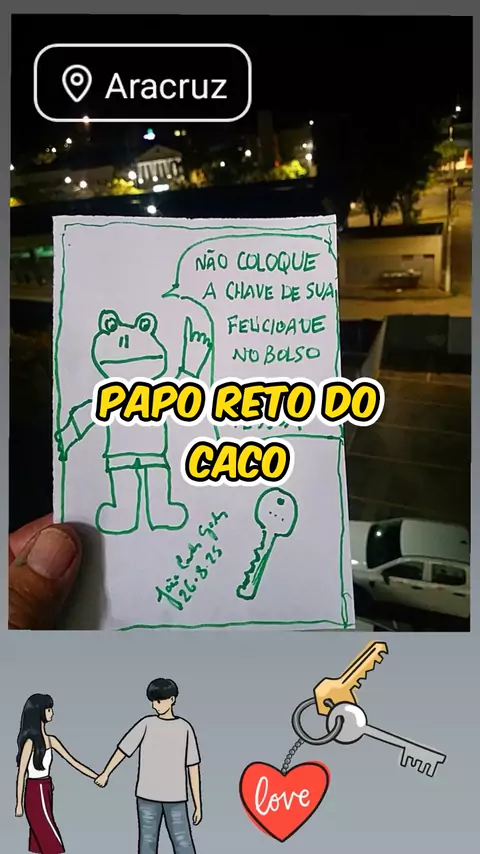 Aracruz
NÃO COLOQUE
A CHAVE DE SUA
FELICIDADE
NO BOLSO
PAPO RETO DO
CACO
26.8.25
love